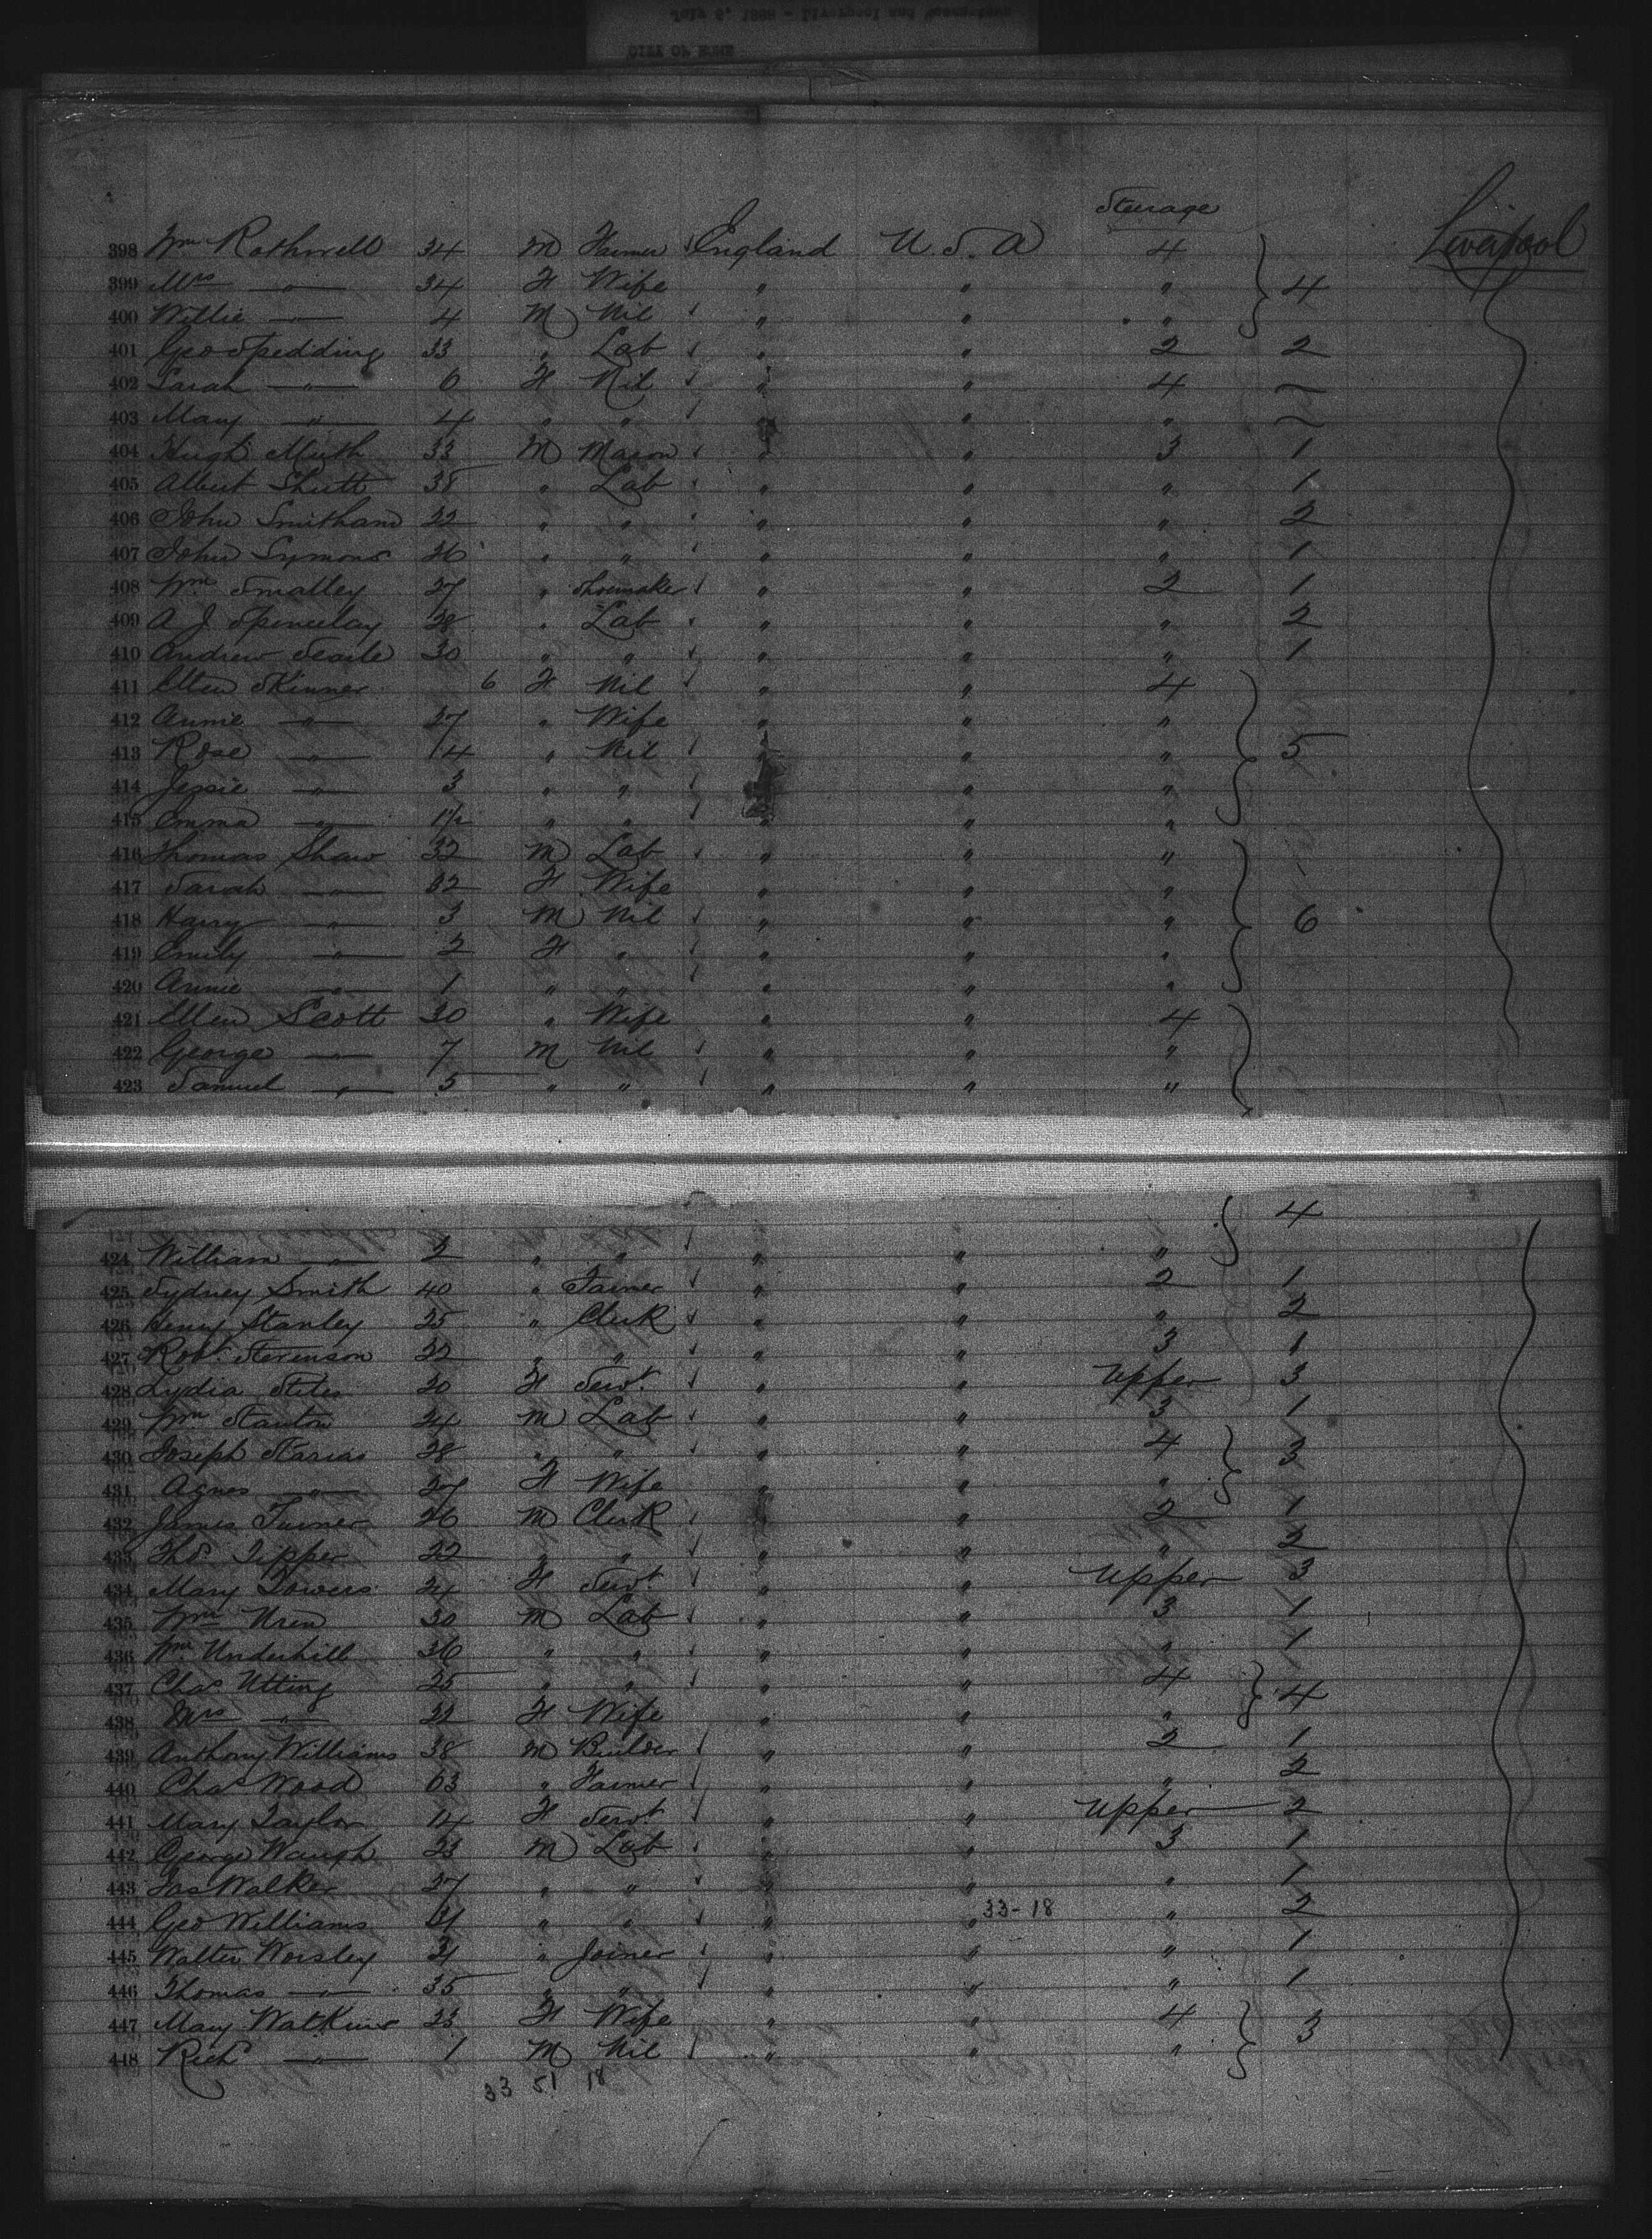 CITY OF ROME
Steerage
Liverpool
398 Wm Rothwell 34 M Farmer England U.S.A 4
399 Mrs " 34 F Wife " " " 4
400 Willie " 4 M Nil " " "
401 Geo Spedding 33 " Lab " " 2 2
402 Sarah " 6 F Nil " " 4 ~
403 Mary " 4 " " " " " ~
404 Hugh 33 M Mason " " 3 1
405 Albert Shutt 38 " Lab " " " 1
406 John Smitham 22 " " " " " 2
407 John Symons 26 " " " " " 1
408 Wm Smalley 27 " Shoemaker " " 2 1
409 A J Spencelay 28 " Lab " " " 2
410 Andrew Searle 30 " " " " " 1
411 Ellen Skinner 6 F Nil " " 4
412 Annie " 27 " Wife " " "
413 Rose " 14 " Nil " " " 5
414 Jessie " 3 " " " " "
415 Emma " 1½ " " " " "
416 Thomas Shaw 32 M Lab " " "
417 Sarah " 32 F Wife " " "
418 Harry " 3 M Nil " " " 6
419 Emily " 2 F " " " "
420 Annie " 1 " " " " "
421 Ellen Scott 30 " Wife " " 4
422 George " 7 M Nil " " "
423 Samuel " 5 " " " " "
4
424 William " 2 " " " " "
425 Sydney Smith 40 " Farmer " " 2 1
426 Henry Stanley 25 " Clerk " " " 2
427 Robt Stevenson 22 " " " " 3 1
428 Lydia Stiles 20 F Servt " " Upper 3
429 Wm Stanton 24 M Lab " " 3 1
430 Joseph 28 " " " " 4 3
431 Agnes " 27 F Wife " " "
432 James Turner 26 M Clerk " " 2 1
433 Thos Tipper 22 " " " " " 2
434 Mary Towers 24 F Servt " " Upper 3
435 Wm Uren 30 M Lab " " 3 1
436 Wm Underhill 36 " " " " " 1
437 Chas Utting 25 " " " " 4 4
438 Mrs " 22 F Wife " " "
439 Anthony Williams 38 M Builder " " 2 1
440 Chas Wood 63 " Farmer " " " 2
441 Mary Taylor 14 F Servt " " Upper 2
442 George Waugh 23 M Lab " " 3 1
443 Jas Walker 27 " " " " " 1
444 Geo Williams 21 " " " " 33-18 " 2
445 Walter Worsley 21 " Joiner " " " 1
446 Thomas " 35 " " " " " 1
447 Mary Watkins 23 F Wife " " 4 3
448 Richd " 1 M Nil " " "
33 51 18